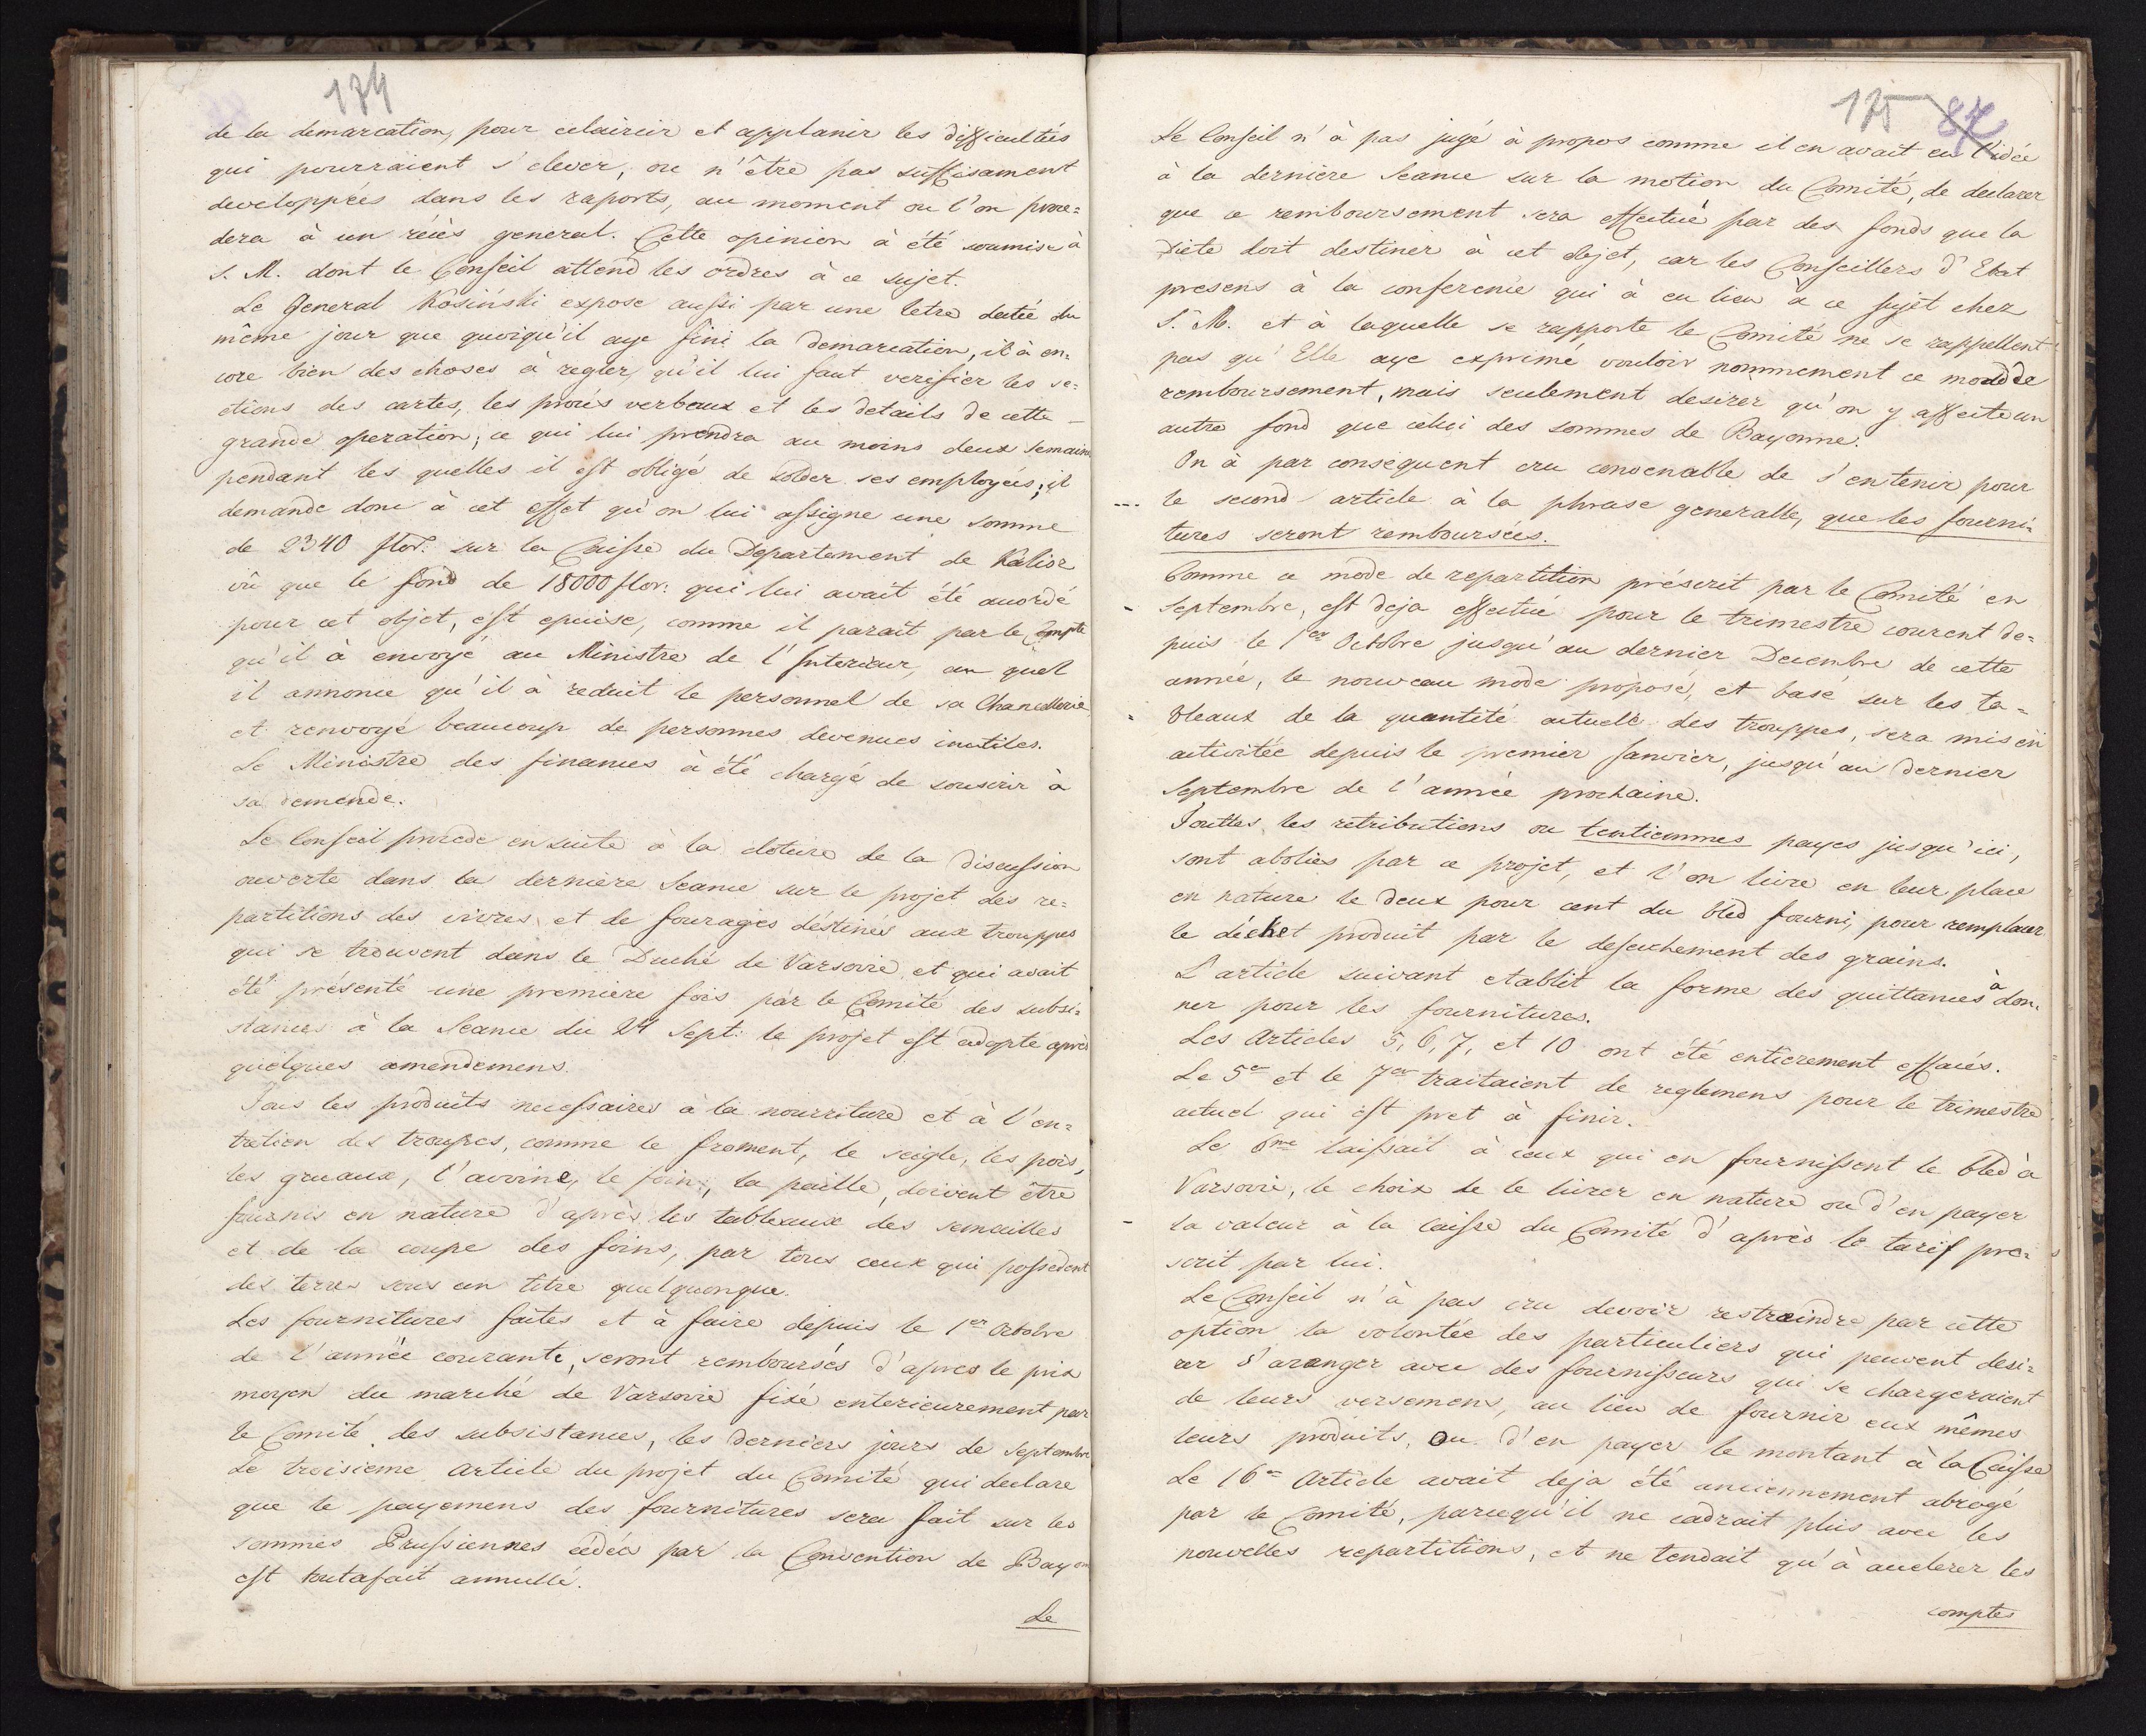 174
de la demarcation, pour eclaircir et applanir les difficultés
qui pourraient s'elever, ou n'être pas suffisament
developpées dans les raports, au moment ou l'on proce=
dera à un récès general. Cette opinion à été soumise à
S. M. dont le Conseil attend les ordres à ce sujet.
Le General Kosiński expose aussi par une letre datée du
même jour que quoiqu'il aye fini la demarcation, il à en=
core bien des choses à regler, qu'il lui faut verifier les se=
ctions des cartes, les procès verbaux et les details de cette
grande operation; ce qui lui prendra au moins deux semaines
pendant les quelles il est obligé de solder ses employées; il
demande donc à cet effet qu'on lui assigne une somme
de 2340 flor: sur la Caisse du Departement de Kalisz
vû que le fond de 18000 flor: qui lui avait été accordé
pour cet objet, est epuisé, comme il parait par le Compte
qu'il à envoyé au Ministre de l'Interieur, au quel
il annonce qu'il à reduit le personnel de sa Chancellerie
et renvoyé beaucoup de personnes devenues inutiles.
Le Ministre des finances à été chargé de souscrir à
sa demende.
Le Conseil procede ensuite à la cloture de la discussion
ouverte dans la derniere Seance sur le projet des re=
partitions des vivres et de fourages déstinés aux trouppes
qui se trouvent dans le Duché de Varsovie et qui avait
été présenté une premiere fois par le Comité des subsi=
stances à la Seance du 24 Sept: le projet est adopté après
quelques amendemens.
Tous les produits necessaires à la nourriture et à l'en=
tretien des troupes, comme le froment, le seigle, les pois,
les gruaux, l'avoine, le foin, la paille, doivent être
fournis en nature d'après les tableaux des semailles
et de la coupe des foins, par tous ceux qui possedent
des terres sous un titre quelquonque.
Les fournitures faites et à faire depuis le 1er Octobre
de l'année courante, seront remboursés d'apres le prix
moyen du marché de Varsovie fixé enterieurement par
le Comité des subsistances, les derniers jours de Septembre
Le troisieme Article du projet du Comité qui declare
que le payemens des fournitures sera fait sur les
sommes Prussiennes cedées par la Convention de Bayon
est toutafait annullé.
Le
175 87
Le Conseil n'à pas jugé à propos comme il en avait eu l'idée
à la derniere Seance sur la motion du Comité, de declarer
que ce remboursement sera effectué par des fonds que la
Diete doit destiner à cet objet, car les Conseillers d'Etat
presens à la conference qui à eu lieu à ce sujet chez
S. M. et à laquelle se rapporte le Comité ne se rappellent
pas qu'Elle aye exprimé vouloir nommement ce mode de
remboursement, mais seulement desirer qu'on y affecte un
autre fond que celui des sommes de Bayonne.
On à par conséquent cru convenable de s'entenir pour
le second article à la phrase generalle, que les fourni=
tures seront remboursées.
Comme ce mode de repartition préscrit par le Comité en
Septembre, est deja effectué pour le trimestre courent de=
puis le 1er Octobre jusqu'au dernier Decembre de cette
année, le nouveau mode proposé, et basé sur les ta=
bleaux de la quantité actuelle des trouppes, sera mis en
activitée depuis le premier Janvier, jusqu'au dernier
Septembre de l'année prochaine.
Touttes les retributions ou tentiemmes payes jusqu'ici,
sont abolies par ce projet, et l'on livre en leur place
en nature le deux pour cent du bled fourni, pour remplacer
le déchet produit par le desechement des grains.
L'article suivant etablit la forme des quittances à don=
ner pour les fournitures.
Les Articles 5, 6, 7, et 10 ont été entierement effacés.
Le 5e et le 7e traitaient de reglemens pour le trimestre
actuel qui est pret à finir.
Le 6me laissait à ceux qui en fournissent le bled à
Varsovie, le choix de le livrer en nature ou d'en payer
la valeur à la caisse du Comité d'après le tarif pre=
scrit par lui.
Le Conseil n'à pas cru devoir restreindre par cette
option la volontée des particuliers qui peuvent desi=
rer s'aranger avec des fournisseurs qui se chargeraient
de leurs versemens, au lieu de fournir eux mêmes
leurs produits, ou d'en payer le montant à la Caisse
Le 16e Article avait deja été anciennement abrogé
par le Comité, parcequ'il ne cadrait plus avec les
nouvelles repartitions, et ne tendait qu'à accelerer les
comptes